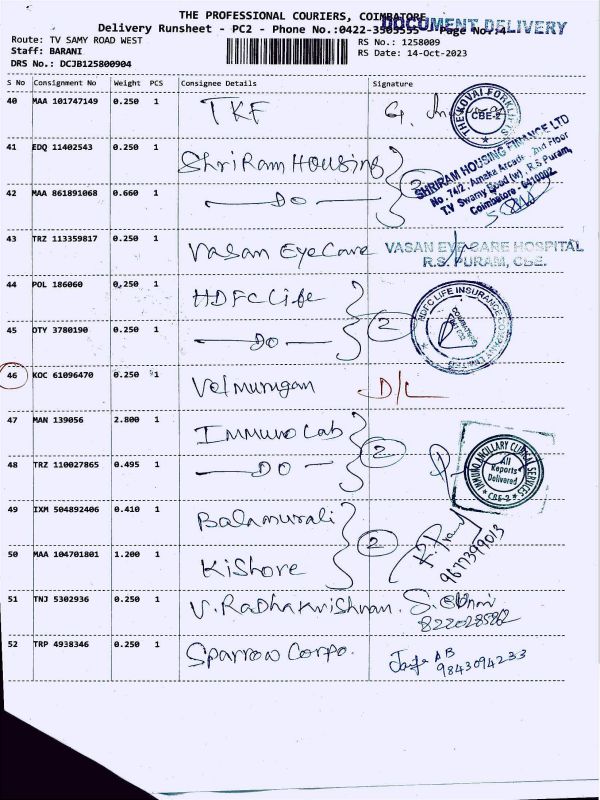 THE PROFESSIONAL COURIERS, COIMBATORE
DOCUMENT DELIVERY
Delivery Runsheet - PC2 - Phone No.:0422-3505555 Page No.:4
Route: TV SAMY ROAD WEST
RS No.: 1258009
Staff: BARANI
RS Date: 14-Oct-2023
DRS No.: DCJB125800904
S No Consignment No Weight PCS Consignee Details Signature
40 MAA 101747149 0.250 1 TKF G.
THE KOVAI FORKLIFTS
CBE-2
41 EDQ 11402543 0.250 1 ShriRam Housing 2
SHRIRAM HOUSING FINANCE LTD
No. 74/2, Amaka Arcade, 2nd Floor
T.V Swamy Road (W), R.S. Puram,
Coimbatore - 641002.
42 MAA 861891068 0.660 1 — DO —
43 TRZ 113359817 0.250 1 Vasan EyeCare
VASAN EYE CARE HOSPITAL
R.S. PURAM, CBE.
44 POL 186060 0.250 1 HDFC Life 2
HDFC LIFE INSURANCE COMPANY LIMITED
COIMBATORE
45 OTY 3780190 0.250 1 — DO —
46 KOC 61096470 0.250 1 Velmurugan D/L
47 MAN 139056 2.800 1 Immuno Lab 2
IMMUNO ANCILLARY CLINICAL SERVICES
All
Reports
Delivered
CBE-2
48 TRZ 110027865 0.495 1 — DO —
49 IXM 504892406 0.410 1 Balamurali 2
50 MAA 104701801 1.200 1 Kishore
9677399013
51 TNJ 5302936 0.250 1 V. Radhakrishnan.
8220285862
52 TRP 4938346 0.250 1 Sparrow Corpo.
AB
9843094233